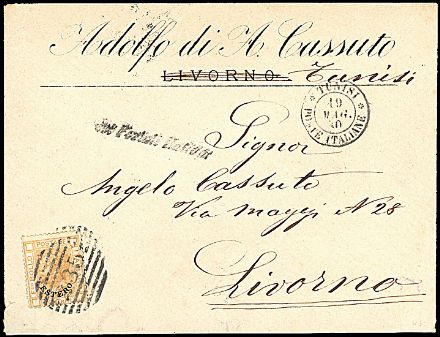 Adolfo di A. Cassuto
LIVORNO Tunisi
TUNISI
19
MAG.
80
POSTE ITALIANE
Signor
Angelo Cassuto
Via maggi N 28
Livorno
ESTERO
235